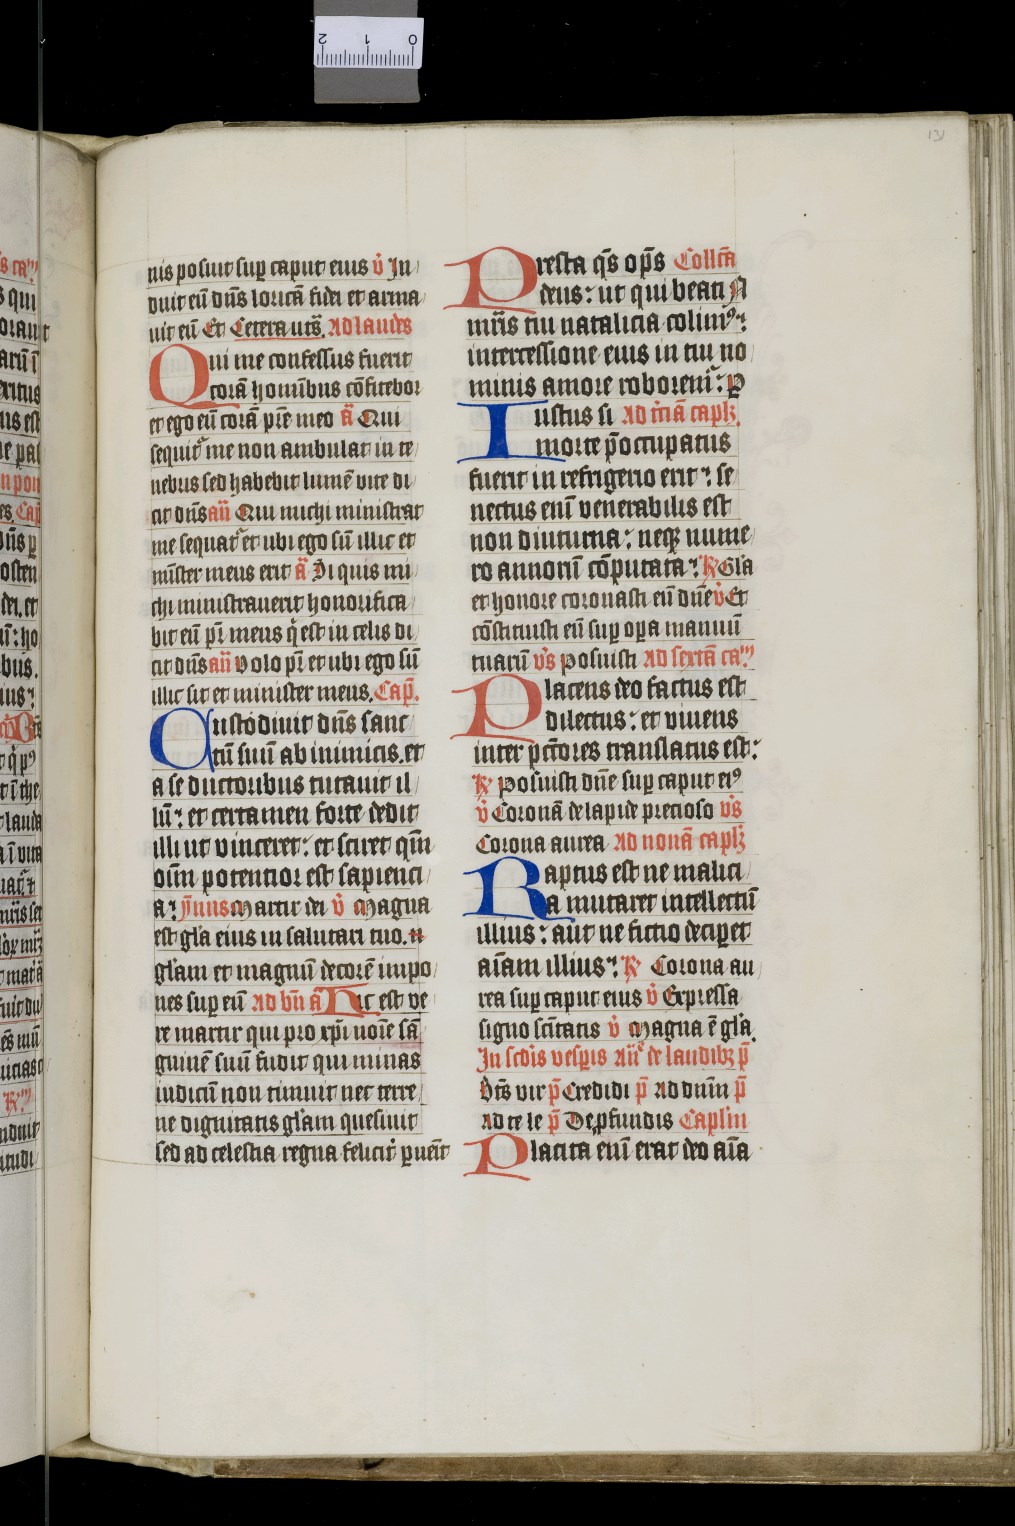 131
nis posuit sup̄ caput eius v̇ In
duit eū dn̄s loricā fidei et arma
uit eū Et Cetera uts̄. Ad laudes
Qui me confessus fuerit
corā hominibus cōfitebor
et ego eū corā pr̄e meo ā Qui
sequit᷑ me non ambulat in te
nebris sed habebit lumē vite di
cit dn̄s an̄ Qui michi ministrat
me sequat᷑ et ubi ego sū illic et
mīster meus erit ā Si quis mi
chi ministrauerit honorifica
bit eū pr̄ meus q̇ est in celis di
cit dn̄s an̄ Volo pr̄ et ubi ego sū
illic sit et minister meus. Cap̄.
Custodiuit dn̄s sanc
tū suū ab inimicis. et
a se ductoribus tutauit il
lū: et certamen forte dedit
illi ut vinceret: et sciret qm̄
oīm potentior est sapienci
a: ȳmus Martir dei v̇ Magna
est gl̄a eius in salutari tuo. R
gl̄am et magnū decorē impo
nes sup̄ eū Ad bn̄ ā Hic est ve
re martir qui pro xp̄i noīe sā
guinē suū fudit qui minas
iudicū non timuit nec terre
ne dignitatis gl̄am quesiuit
sed ad celestia regna felicit᷑ p̲uēit
Presta qs̄ op̄s Collc̄a
deus: ut qui beati N
mr̄is tui natalicia colimꝰ:
intercessione eius in tui no
minis amore roborem᷑: P̲
Iustus si Ad tc̄iā capl̄ꝫ.
morte p̄occupatus
fuerit in refrigerio erit: se
nectus enī venerabilis est
non diuturna: neqꝫ nume
ro annorū cōputata: ℟ Gl̄a
et honore coronasti eū dn̄e v̇ Et
cōstituisti eū sup̄ op̲a manuū
tuarū v̇s Posuisti Ad sextā ca᷑ᵐ
Placens deo factus est
dilectus: et viuens
inter pc̄c̄ores translatus est:
℟ Posuisti dn̄e sup̄ caput eiꝰ
v̇ Coronā de lapide precioso v̇s
Corona aurea Ad nonā capl̄ꝫ
Raptus est ne malici
a mutaret intellectū
illius: aut ne fictio decip̲et
aīam illius: ℟ Corona au
rea sup̄ caput eius v̇ Expressa
signo sc̄itatis v̇ Magna ē gl̄a.
In sc̄dis vesp̲is an̄ᵉ de laudibꝫ p̄
Bt̄s vir p̄ Credidi p̄ Ad dn̄m p̄
Ad te le p̄ De p̲fundis Capl̄m
Placita enī erat deo aīa